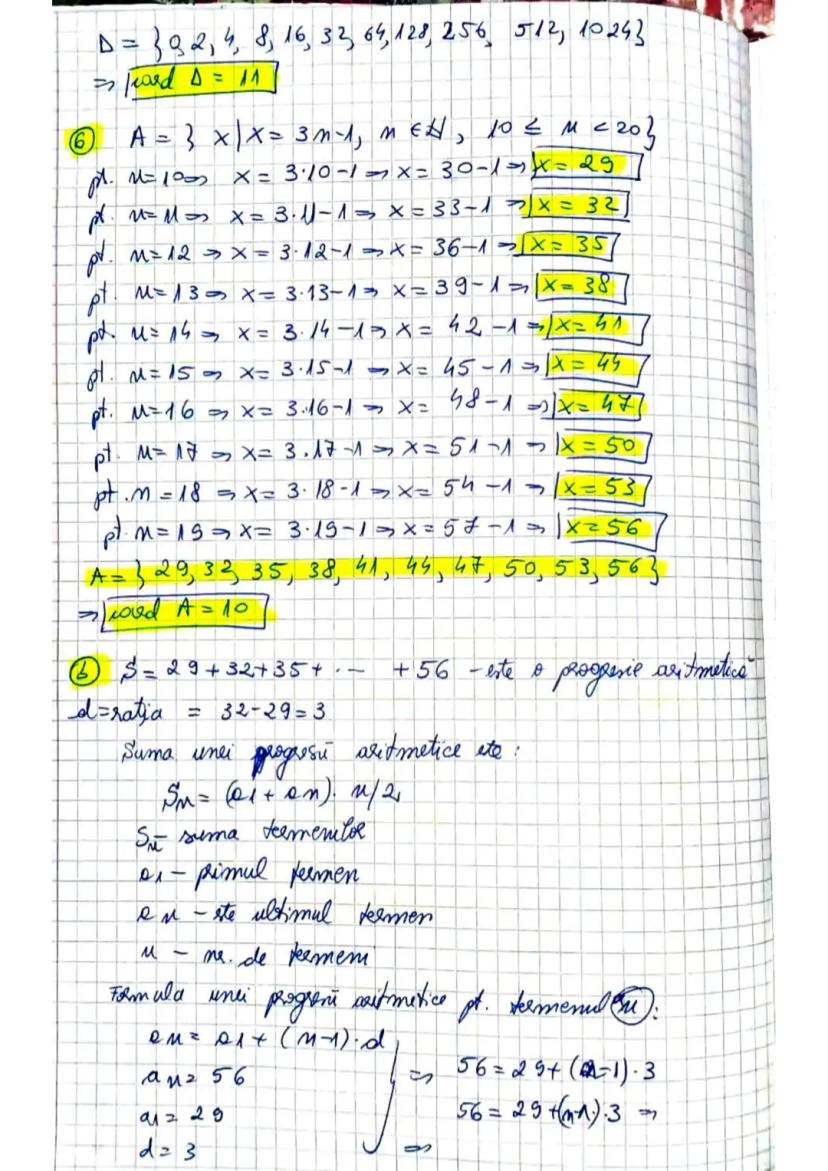 D = { 0, 2, 4, 8, 16, 32, 64, 128, 256, 512, 1024}
⇒ card D = 11
⑥ A = { x | x = 3n-1, n ∈ N, 10 ≤ n < 20}
pt. n=10 ⇒ x = 3·10-1 ⇒ x = 30-1 ⇒ x = 29
pt. n=11 ⇒ x = 3·11-1 ⇒ x = 33-1 ⇒ x = 32
pt. n=12 ⇒ x = 3·12-1 ⇒ x = 36-1 ⇒ x = 35
pt. n=13 ⇒ x = 3·13-1 ⇒ x = 39-1 ⇒ x = 38
pt. n=14 ⇒ x = 3·14-1 ⇒ x = 42-1 ⇒ x = 41
pt. n=15 ⇒ x = 3·15-1 ⇒ x = 45-1 ⇒ x = 44
pt. n=16 ⇒ x = 3·16-1 ⇒ x = 48-1 ⇒ x = 47
pt. n=17 ⇒ x = 3·17-1 ⇒ x = 51-1 ⇒ x = 50
pt. n=18 ⇒ x = 3·18-1 ⇒ x = 54-1 ⇒ x = 53
pt. n=19 ⇒ x = 3·19-1 ⇒ x = 57-1 ⇒ x = 56
A = { 29, 32, 35, 38, 41, 44, 47, 50, 53, 56}
⇒ card A = 10
ⓑ S = 29+32+35+... +56 - este o progresie aritmetică
d = rația = 32-29=3
Suma unei progresii aritmetice este :
Sn = (a1 + an)· n/2,
Sn - suma termenilor
a1 - primul termen
an - este ultimul termen
n - nr. de termeni
Formula unei progresii aritmetice pt. termenul n :
an = a1 + (n-1)·d
an = 56 ⇒ 56 = 29+ (n-1)·3
a1 = 29 56 = 29+(n-1)·3 ⇒
d = 3 ⇒